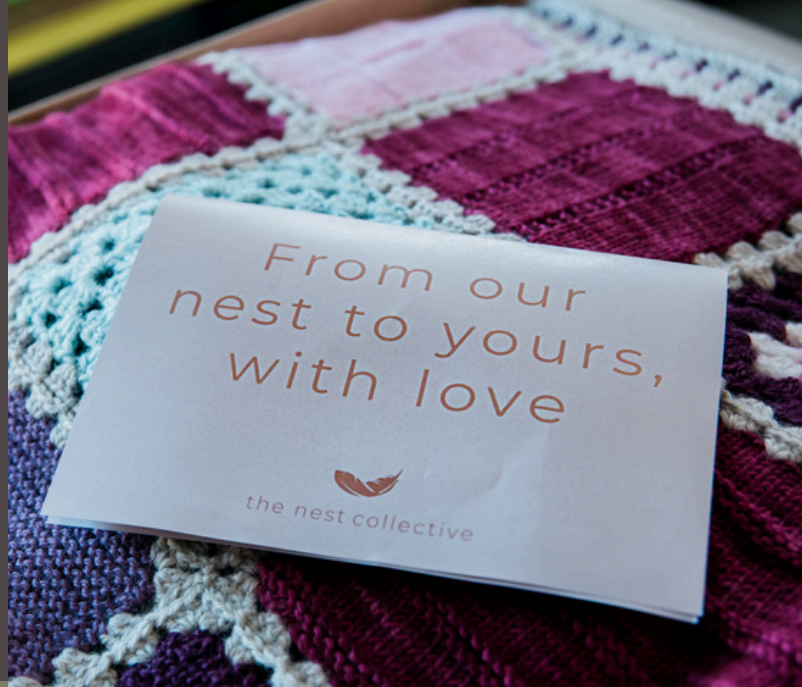 From our
nest to yours,
with love
the nest collective